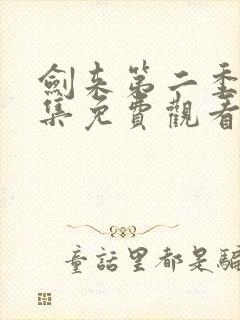 劍來第二季
集免費觀看
童話里都是騙